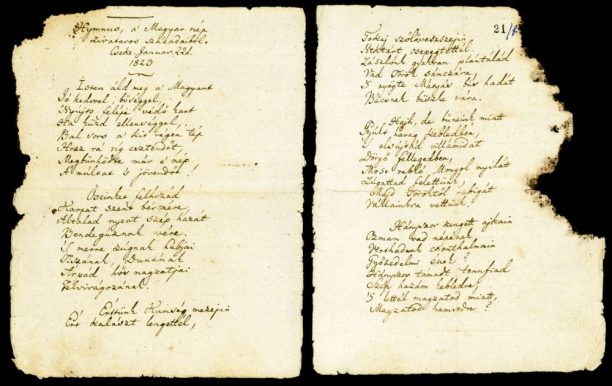 Hymnus, a' Magyar nép
zivataros századaiból.
Cseke Januar. 22d.
1823
Isten áldd meg a Magyart
Jó kedvvel, bőséggel,
Nyujts feléje védő kart
Ha küzd ellenséggel;
Bal sors a' kit régen tép
Hozz rá víg esztendőt,
Megbünhödte már e' nép
A' multat 's jövendőt!
Őseinket felhozád
Kárpát szent bérczére,
Általad nyert szép hazát
Bendegúznak vére.
'S merre zúgnak habjai
Tiszának, Dunának
Árpád hős magzatjai
Felvirágozának.
Értünk Kunság mezein
Ért kalászt lengettél,
21/
Tokaj szőlővesszein
Nektárt csepegtettél.
Zászlónk gyakran plántálád
Vad Török sánczára,
'S nyögte Mátyás bús hadát
Bécsnek büszke vára.
Hajh, de bűneink miatt
Gyúlt harag kebledben,
'S elsújtád villámidat
Dörgő fellegedben,
Most rabló Mongol nyilát
Zúgattad felettünk,
Majd Töröktől rabigát
Vállainkra vettünk.
Hányszor zengett ajkain
Ozman vad népének
Vert hadunk csonthalmain
Győzedelmi ének!
Hányszor támadt tenfiad
Szép hazám kebledre,
'S lettél magzatod miatt,
Magzatod hamvvedre?